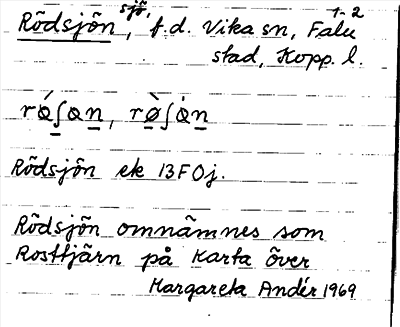 Rödsjön, sjö, f.d. Vika sn, Falu 1-2
stad, Kopp. l.
Rödsjön ek 13F0j.
Rödsjön omnämnes som
Rosttjärn på Karta över
Margareta Andér 1969